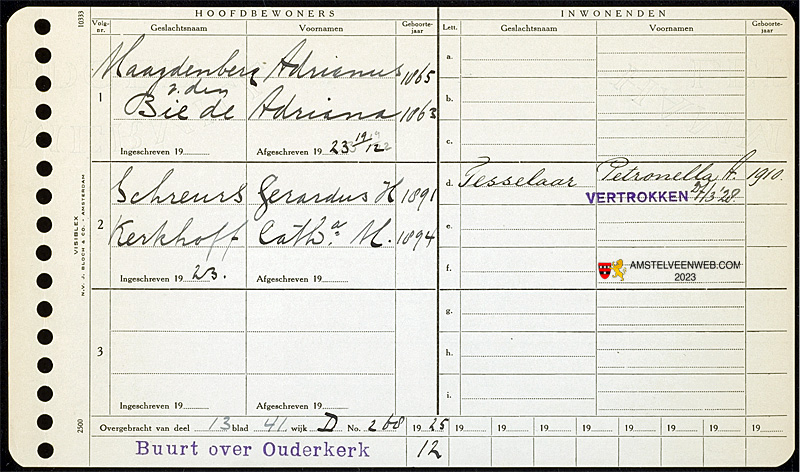 HOOFDBEWONERS INWONENDEN
10333 Volg-nr. Geslachtsnaam Voornamen Geboorte-jaar Lett. Geslachtsnaam Voornamen Geboorte-jaar
1 Maazdenberg Adrianus 1865
v. den
Bie de Adriana 1863
Ingeschreven 19 Afgeschreven 1923 19/12
a.
b.
c.
2 Schreurs Gerardus H 1891
Kerkhoff Cath.a M. 1894
Ingeschreven 1923. Afgeschreven 19
d. Tesselaar Petronella A. 1910.
VERTROKKEN 21/3 '28
e.
f.
AMSTELVEENWEB.COM
2023
3
Ingeschreven 19 Afgeschreven 19
g.
h.
i.
VISIBLEX
N.V. J. BLOCH & CO. - AMSTERDAM
2500
Overgebracht van deel 13 blad 41 wijk D No. 268 1925 19 19 19 19 19 19 19 19 19
Buurt over Ouderkerk 12